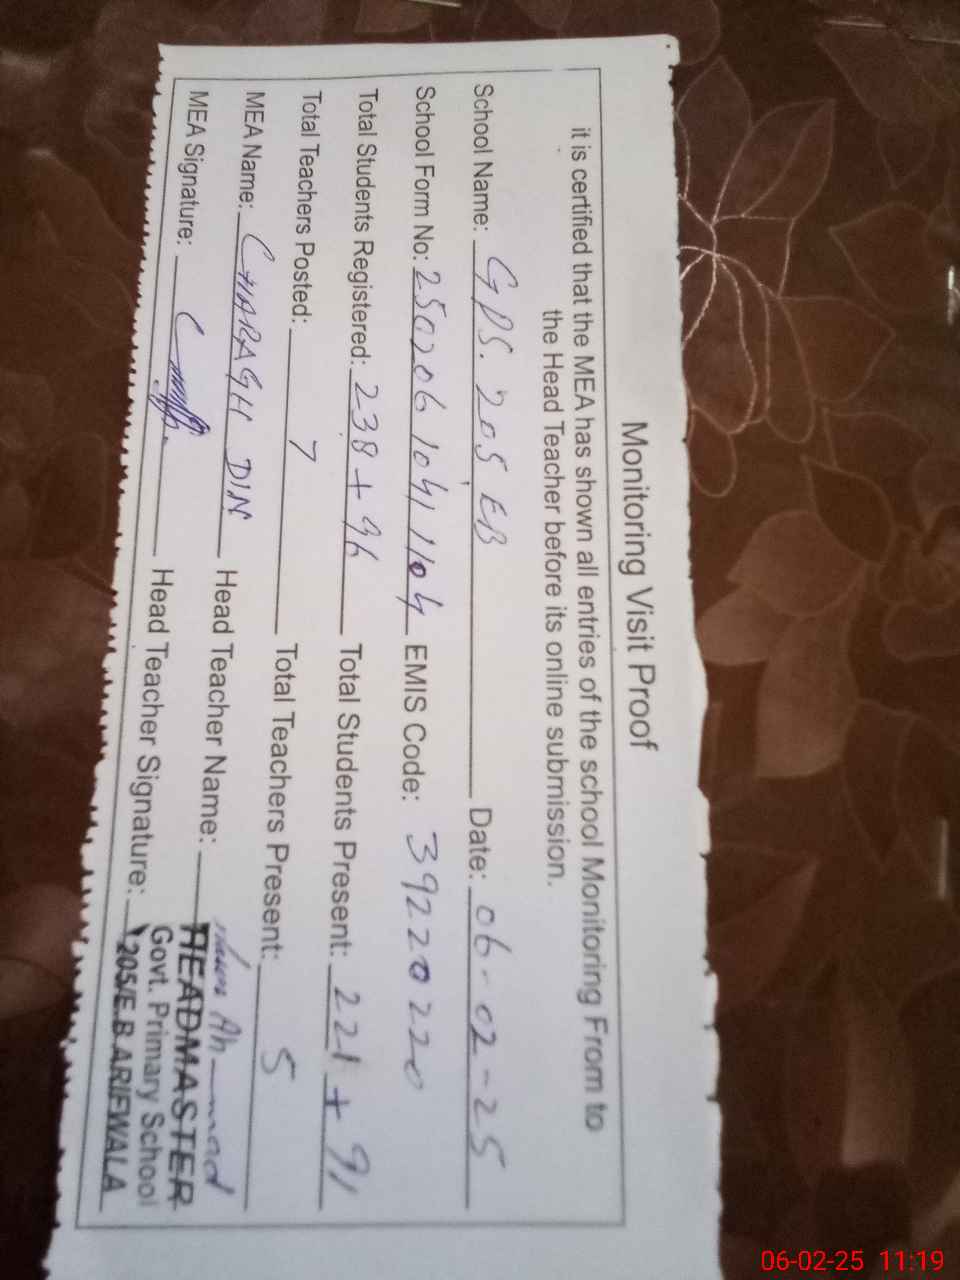 Monitoring Visit Proof
it is certified that the MEA has shown all entries of the school Monitoring From to
the Head Teacher before its online submission.
School Name: GPS. 205 EB Date: 06-02-25
School Form No: 250206 1041 1104 EMIS Code: 39220220
Total Students Registered: 238 + 96 Total Students Present: 221 + 91
Total Teachers Posted: 7 Total Teachers Present: 5
MEA Name: CHARAGH DIN Head Teacher Name: Ahmad
MEA Signature: Head Teacher Signature:
HEADMASTER
Govt. Primary School
205/E.B ARIFWALA
06-02-25 11:19